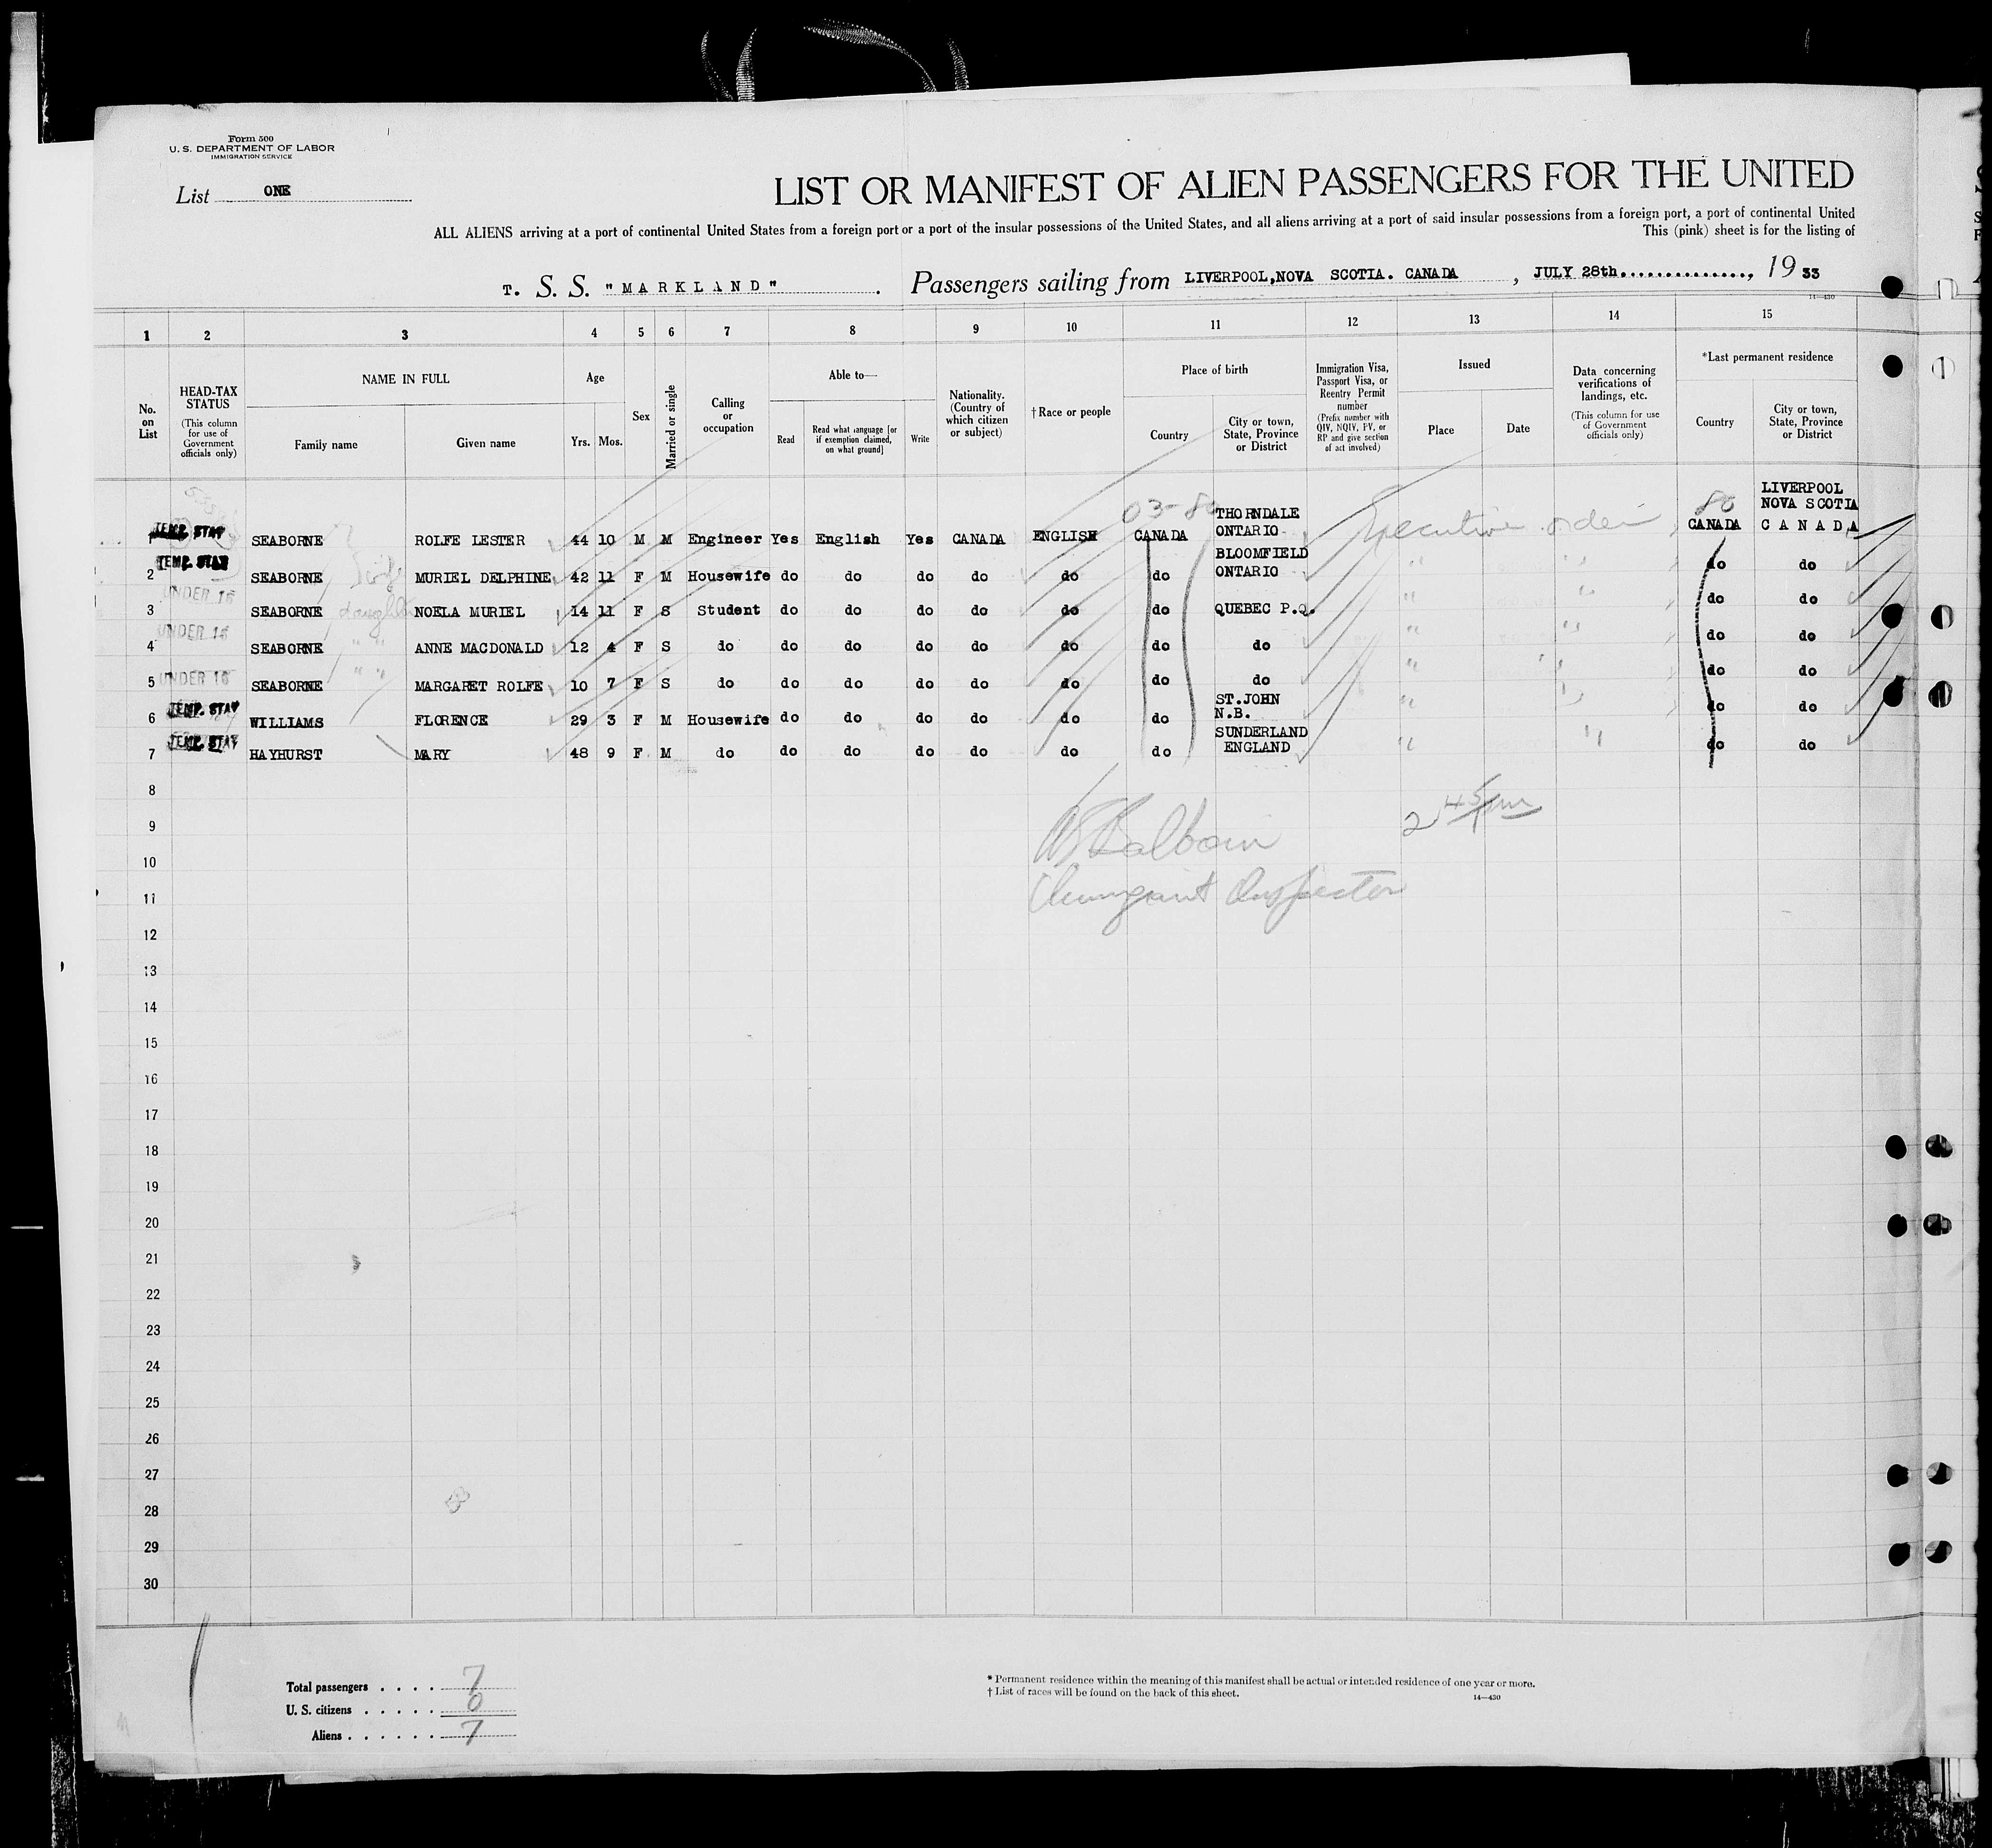 Form 500
U. S. DEPARTMENT OF LABOR
IMMIGRATION SERVICE
List ONE
LIST OR MANIFEST OF ALIEN PASSENGERS FOR THE UNITED
ALL ALIENS arriving at a port of continental United States from a foreign port or a port of the insular possessions of the United States, and all aliens arriving at a port of said insular possessions from a foreign port, a port of continental United
This (pink) sheet is for the listing of
T. S. S. "MARKLAND" . Passengers sailing from LIVERPOOL,NOVA SCOTIA. CANADA , JULY 28th..............., 19 33
14—430
1 2 3 4 5 6 7 8 9 10 11 12 13 14 15
No. on List
HEAD-TAX STATUS
(This column for use of Government officials only)
NAME IN FULL
Family name
Given name
Age
Yrs. Mos.
Sex
Married or single
Calling or occupation
Able to—
Read
Read what language [or if exemption claimed, on what ground]
Write
Nationality. (Country of which citizen or subject)
†Race or people
Place of birth
Country
City or town, State, Province or District
Immigration Visa, Passport Visa, or Reentry Permit number
(Prefix number with QIV, NQIV, PV, or RP and give section of act involved)
Issued
Place
Date
Data concerning verifications of landings, etc.
(This column for use of Government officials only)
*Last permanent residence
Country
City or town, State, Province or District
03-80
80
1 TEMP. STAY SEABORNE ROLFE LESTER 44 10 M M Engineer Yes English Yes CANADA ENGLISH CANADA THORNDALE ONTARIO Executive order CANADA LIVERPOOL NOVA SCOTIA CANADA
2 TEMP. STAY SEABORNE wife MURIEL DELPHINE 42 11 F M Housewife do do do do do do BLOOMFIELD ONTARIO " " do do
3 UNDER 16 SEABORNE daughter NOELA MURIEL 14 11 F S Student do do do do do do QUEBEC P.Q. " " do do
4 UNDER 16 SEABORNE " " ANNE MACDONALD 12 4 F S do do do do do do do do " " do do
5 UNDER 16 SEABORNE " " MARGARET ROLFE 10 7 F S do do do do do do do do " " do do
6 TEMP. STAY WILLIAMS FLORENCE 29 3 F M Housewife do do do do do do ST.JOHN N.B. " " do do
7 TEMP. STAY HAYHURST MARY 48 9 F M do do do do do do do SUNDERLAND ENGLAND " " do do
8
9
2 45 pm
10
11
Immigrant Inspector
12
13
14
15
16
17
18
19
20
21
22
23
24
25
26
27
28
29
30
Total passengers . . . . 7
U. S. citizens . . . . . 0
Aliens . . . . . . 7
* Permanent residence within the meaning of this manifest shall be actual or intended residence of one year or more.
† List of races will be found on the back of this sheet.
14—430